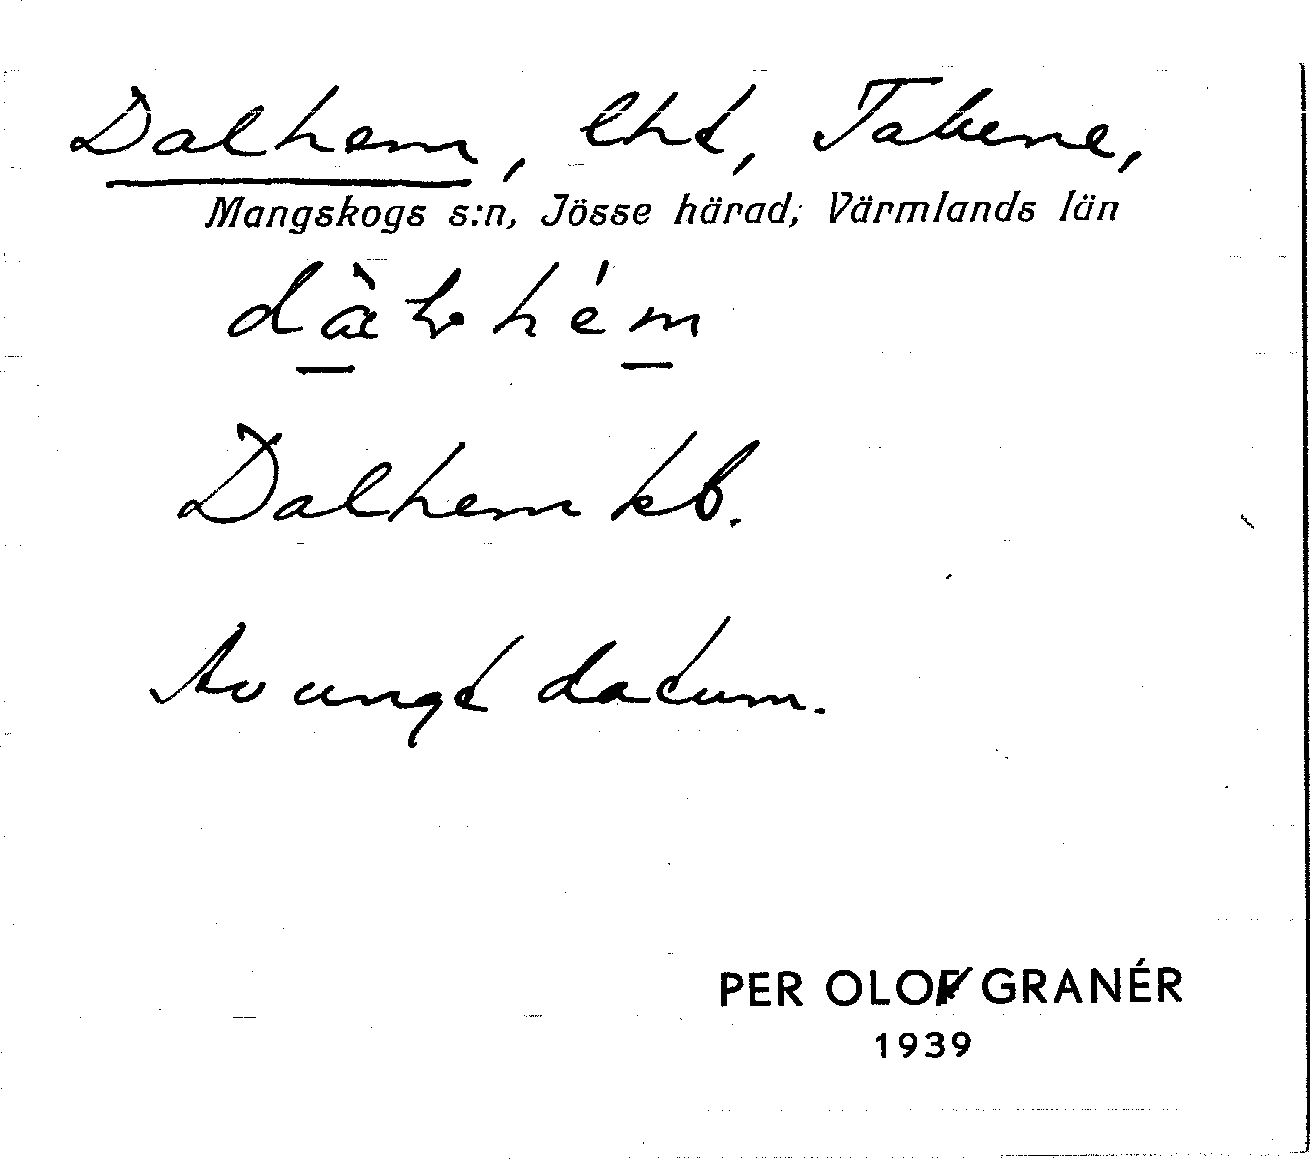 Dalhem, lht, Takene,
Mangskogs s:n, Jösse härad, Värmlands län
Dalhem kb.
Av ungt datum.
PER OLOF GRANÉR
1939